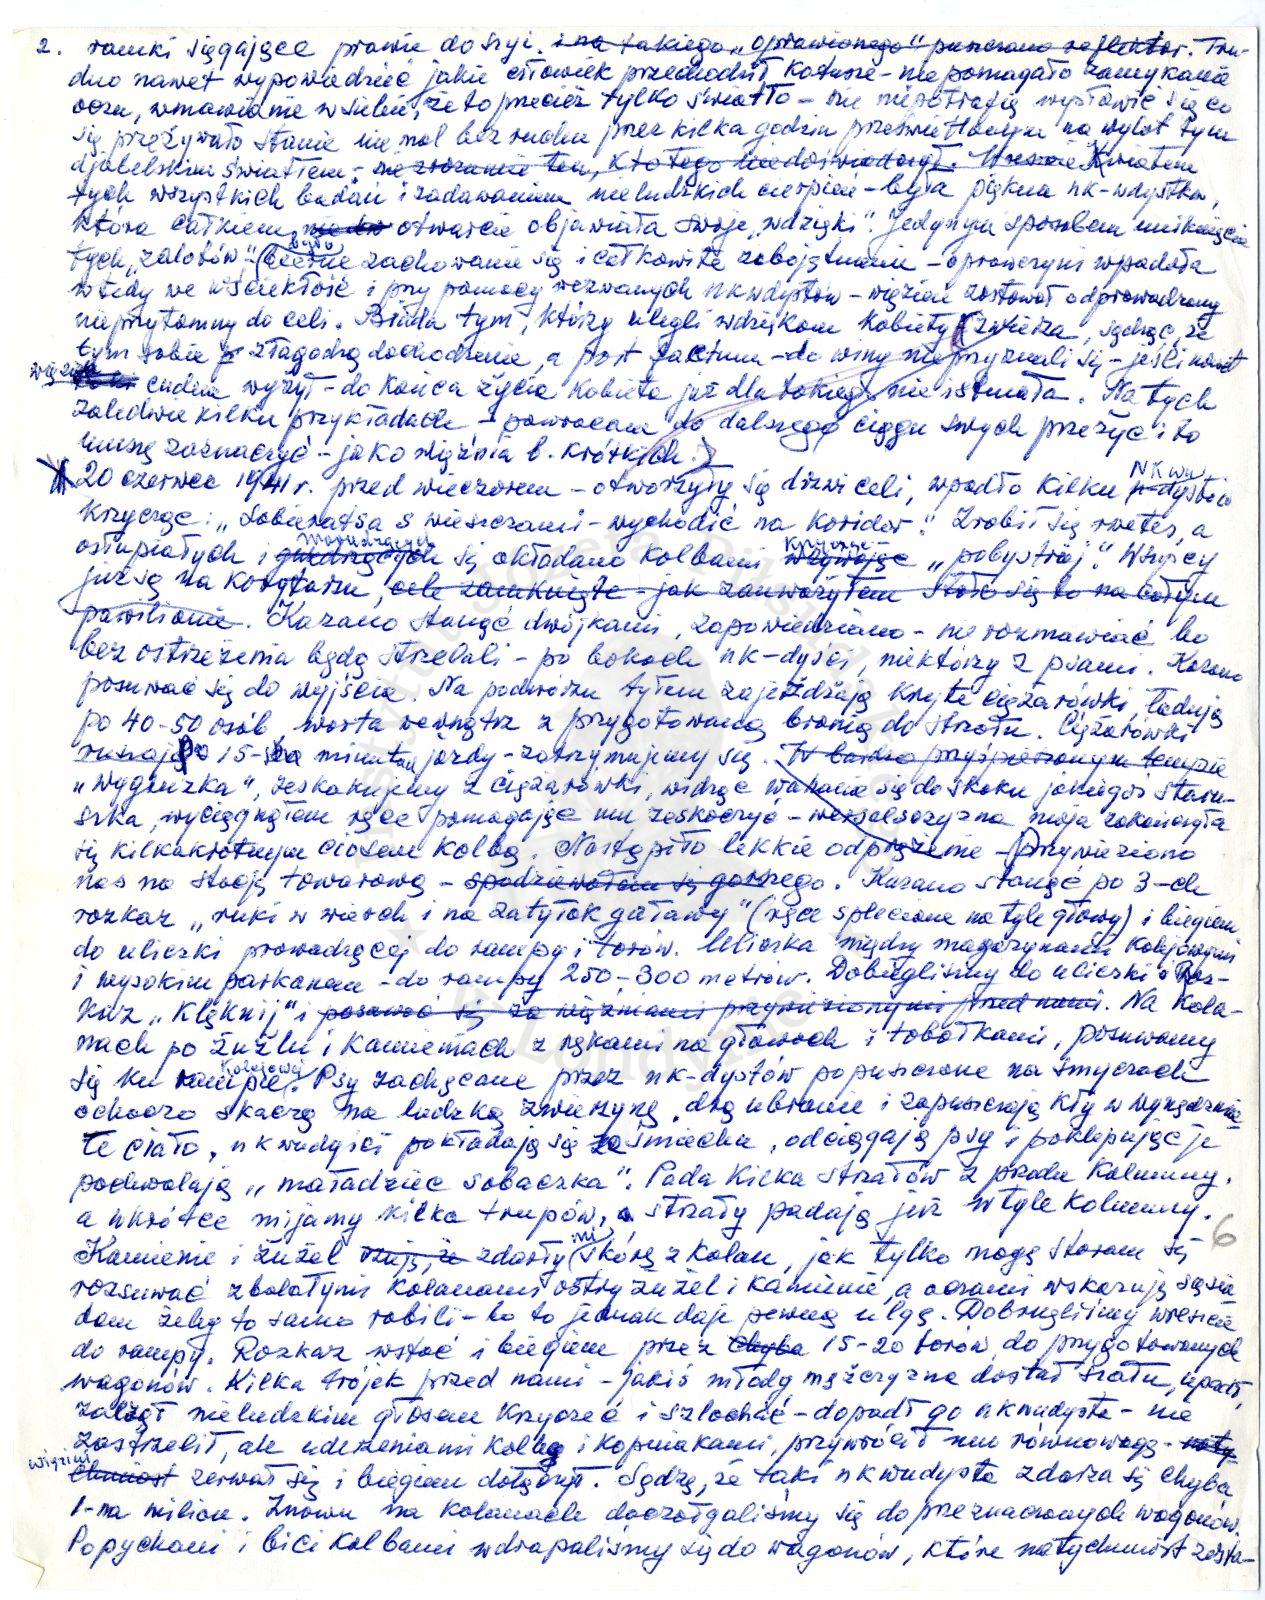 2. ramki sięgające prawie do szyi. i na takiego „oprawionego" puszczano reflektor. Tru-
dno nawet wypowiedzieć jakie człowiek przechodził katusze – nie pomagało zamykanie
oczu, wmawianie w siebie, że to przecież tylko światło – nie potrafię wysłowić się co
się przeżywało stanie nie mal bez ruchu przez kilka godzin prześwietlonym na wylot tym
djabelskim światłem; nie zrozumie ten, kto tego nie doświadczył. Wreszcie Kwiatem
tych wszystkich badań i zadawaniem nieludzkich cierpień – była piękna nk-wdystka,
która całkiem otwarcie objawiała swoje „wdzięki". Jedynym sposobem uniknięcia
tych „zalotów" było bierne zachowanie się i całkowite zobojętnienie – oprawczyni wpadała
wtedy we wściekłość i przy pomocy wezwanych nkwdystów – więzień zostawał odprowadzony
nieprzytomny do celi. Biada tym, którzy ulegli wdziękom kobiety zwierza, sądząc, że
tym sobie złagodzą dochodzenie, a post factum – do winy nie przyznali się – jeśli nawet
więzień cudem wyżył – do końca życia kobieta już dla takiego nie istniała. Na tych
zaledwie kilku przykładach – powracam do dalszego ciągu swych przeżyć i to
muszę zaznaczyć – jako więźnia b. krótkich.
20 czerwca 1941 r. przed wieczorem – otworzyły się drzwi celi, wpadło kilku NKwdystów
krzycząc: „Sobieratsa s wieszczami – wychodić na koridor". Zrobił się rwetes, a
osłupiałych i marudzących się okładano kolbami krzycząc „pobystrej". Wszyscy
już są na korytarzu, cele zamknięte – jak zauważyłem stało się to na całym
pawilonie. Kazano stanąć dwójkami, zapowiedziano – nie rozmawiać bo
bez ostrzeżenia będą strzelali – po bokach nk-dyści, niektórzy z psami. Kazano
posuwać się do wyjścia. Na podwórzu tyłem zajeżdżają kryte ciężarówki, ładują
po 40-50 osób, warta wewnątrz z przygotowaną bronią do strzału. Ciężarówki
ruszają Po 15- minutach jazdy – zatrzymujemy się. W bardzo przyśpieszonym tempie
„wygruzka", zeskakujemy z ciężarówki, widząc wahanie się do skoku jakiegoś starusz-
szka, wyciągnąłem ręce pomagając mu zeskoczyć – wersalszczyzna moja zakończyła
się kilkakrotnym ciosem kolbą. Nastąpiło lekkie odprężenie – Przywieziono
nas na stację towarową – spodziewałem się gorszego. Kazano stanąć po 3-ch
rozkaz „ruki w wierch i na zatyłok gaławy" (ręce splecione na tyle głowy) i biegiem
do uliczki prowadzącej do rampy i torów. Uliczka między magazynami kolejowymi
i wysokim parkanem – do rampy 250-300 metrów. Dobiegliśmy do uliczki Roz-
kaz „Klęknij" i posuwać się za więźniami przywiezionymi przed nami. Na kola-
nach po żużlu i kamieniach z rękami na głowach i tobołkami, posuwamy
się ku rampie kolejowej. Psy zachęcane przez nk-dystów popuszczone na smyczach
ochoczo skaczą na ludzką zwierzynę, drą ubranie i zapuszczają kły w wynędznia-
łe ciało, nkwudyści pokładają się ze śmiechu, odciągają psy i poklepując je
pochwalają „maładziec sobaczka". Pada kilka strzałów z przodu kolumny,
a wkrótce mijamy kilka trupów, a strzały padają już w tyle kolumny.
Kamienie i żużel zdarły mi skórę z kolan, jak tylko mogę staram się
rozsuwać zbolałymi kolanami ostry żużel i kamienie, a oczami wskazuję sąsia
dom żeby to samo robili – bo to jednak daje pewną ulgę. Dobrnęliśmy wreszcie
do rampy. Rozkaz wstać i biegiem przez chyba 15-20 torów do przygotowanych
wagonów. Kilka trójek przed nami – jakiś młody mężczyzna dostał szału, upadł,
zaczął nieludzkim głosem krzyczeć i szlochać – dopadł go nkwudysta – nie
zastrzelił, ale uderzeniami kolbą i kopniakami, przywrócił mu równowagę – naty
chmiast więzień zerwał się i biegiem dołączył. Sądzę, że taki nkwudysta zdarza się chyba
1-na milion. Znowu na kolanach doczołgaliśmy się do przeznaczonych wagonów.
Popychani i bici kolbami wdrapaliśmy się do wagonów, które natychmiast zosta-
6